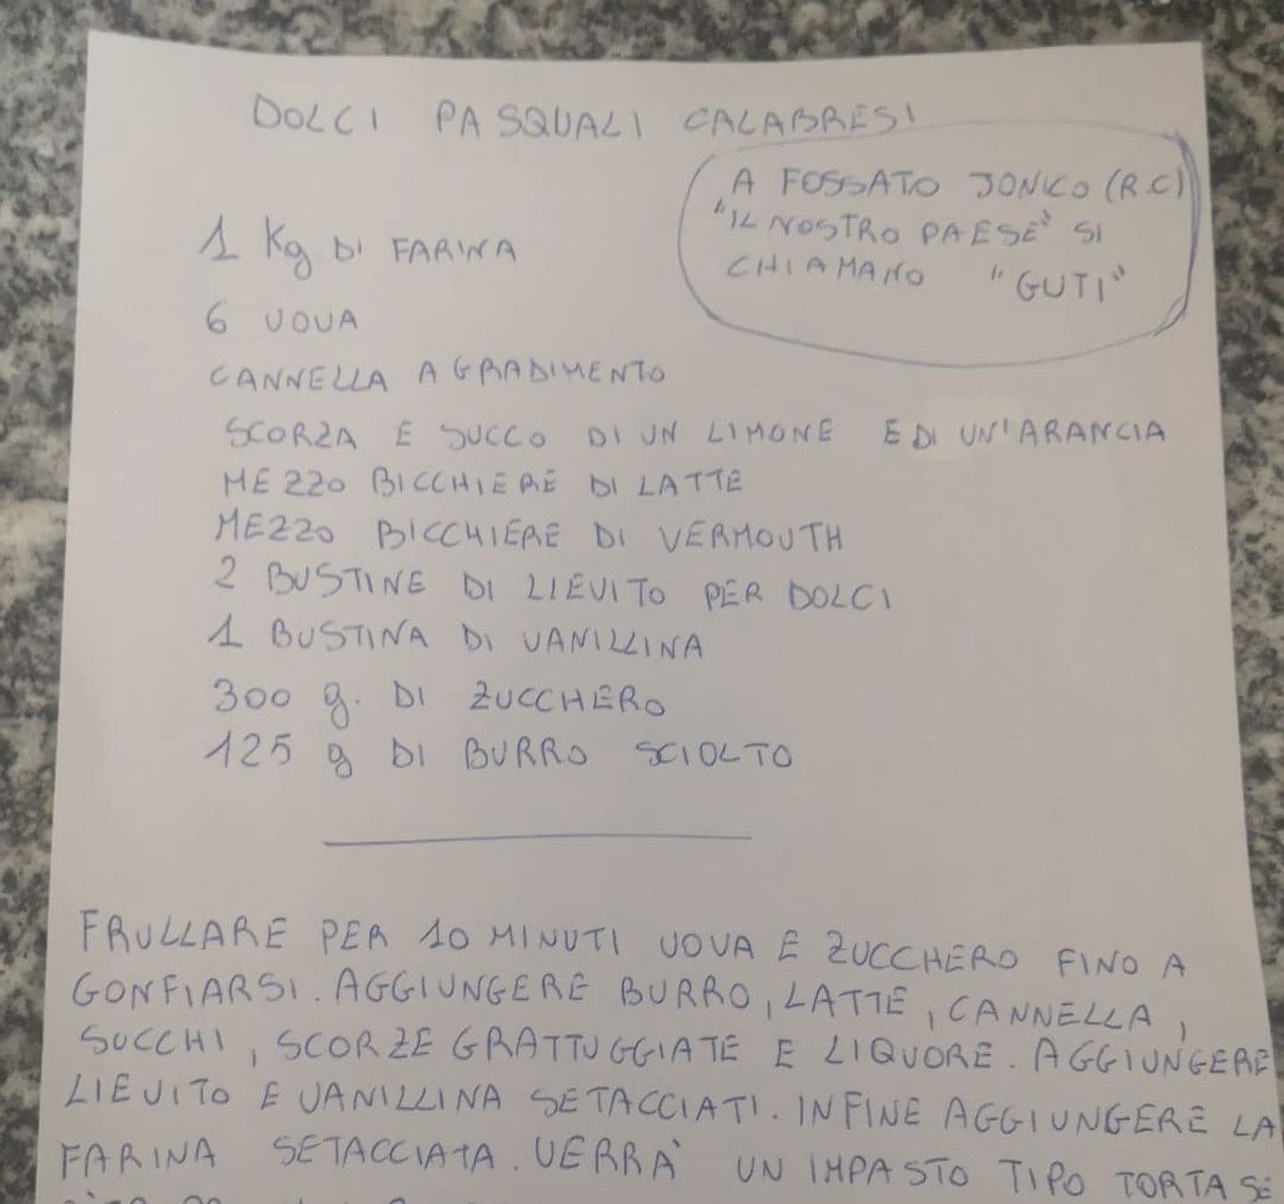 DOLCI PASQUALI CALABRESI
A FOSSATO JONICO (R.C)
"IL NOSTRO PAESE" SI
CHIAMANO "GUTI"
1 Kg DI FARINA
6 UOVA
CANNELLA A GRADIMENTO
SCORZA E SUCCO DI UN LIMONE E DI UN'ARANCIA
MEZZO BICCHIERE DI LATTE
MEZZO BICCHIERE DI VERMOUTH
2 BUSTINE DI LIEVITO PER DOLCI
1 BUSTINA DI VANILLINA
300 g. DI ZUCCHERO
125 g DI BURRO SCIOLTO
FRULLARE PER 10 MINUTI UOVA E ZUCCHERO FINO A
GONFIARSI. AGGIUNGERE BURRO, LATTE, CANNELLA,
SUCCHI, SCORZE GRATTUGGIATE E LIQUORE. AGGIUNGERE
LIEVITO E VANILLINA SETACCIATI. INFINE AGGIUNGERE LA
FARINA SETACCIATA. VERRÀ UN IMPASTO TIPO TORTA SE